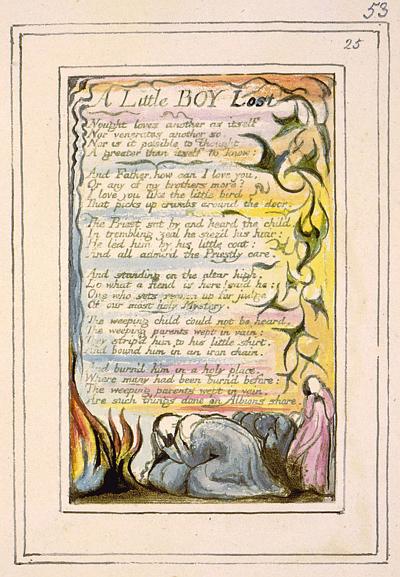 53
25
A Little BOY Lost
Nought loves another as itself
Nor venerates another so.
Nor is it possible to Thought
A greater than itself to know:
And Father, how can I love you,
Or any of my brothers more?
I love you like the little bird
That picks up crumbs around the door.
The Priest sat by and heard the child.
In trembling zeal he siez'd his hair:
He led him by his little coat:
And all admir'd the Priestly care.
And standing on the altar high,
Lo what a fiend is here! said he:
One who sets reason up for judge
Of our most holy Mystery.
The weeping child could not be heard,
The weeping parents wept in vain:
They strip'd him to his little shirt,
And bound him in an iron chain.
And burn'd him in a holy place,
Where many had been burn'd before:
The weeping parents wept in vain.
Are such things done on Albions shore.